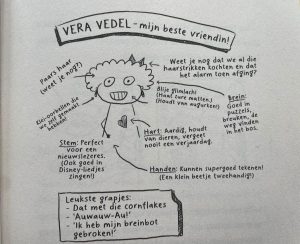 VERA VEDEL - mijn beste vriendin!
Weet je nog dat we al die
haarstrikken kochten en dat
het alarm toen afging?
Paars haar
(weet je nog?)
Blije glimlach!
(Haat zure matten.)
(Houdt van augurken)
Brein:
Goed in
puzzels,
breuken, de
weg vinden
in het bos.
Klei-oorbellen die
we zelf gemaakt
hebben!
Hart: Aardig, houdt
van dieren, vergeet
nooit een verjaardag.
Stem: Perfect
voor een
nieuwslezeres.
(Ook goed in
Disney-liedjes
zingen!)
Handen: Kunnen supergoed tekenen!
(Een klein beetje tweehandig!)
Leukste grapjes:
- Dat met die cornflakes
- 'Auwauw-Au!'
- 'Ik heb mijn breinbot
gebroken!'